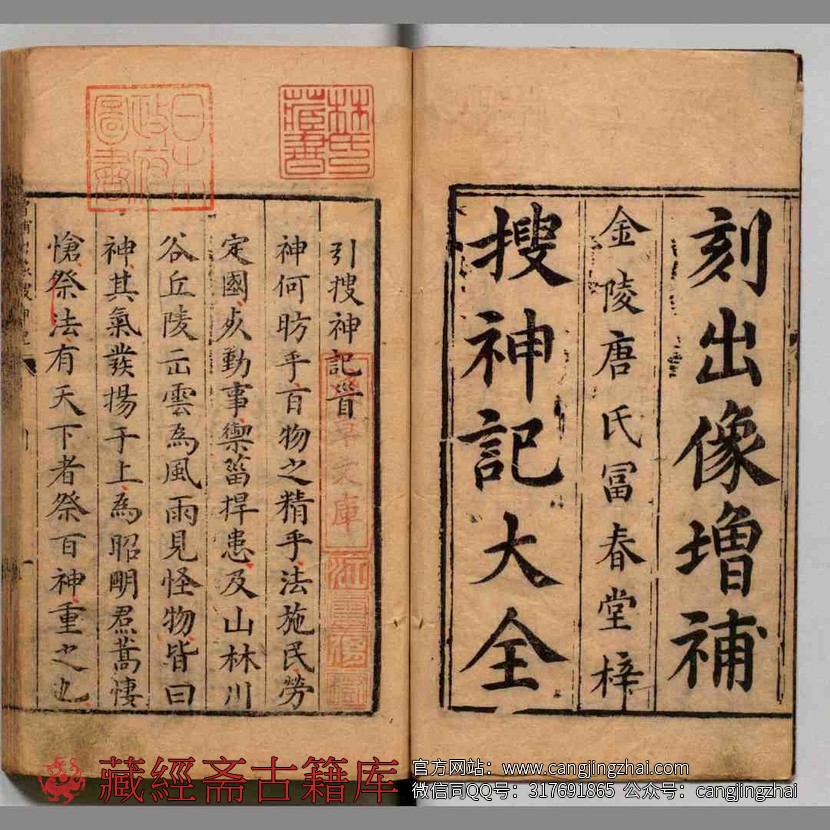 刻出像增補
金陵唐氏富春堂梓
搜神記大全
林氏藏書
日本政府圖書
引搜神記首
神何昉乎百物之精乎法施民勞
定國夊動事禦菑捍患及山林川
谷丘陵云雲為風雨見怪物皆曰
神其氣發揚于上為昭明焄蒿悽
愴祭法有天下者祭百神重之也
草文庫
藏經斋古籍库
官方网站：www.cangjingzhai.com
微信同QQ号：317691865 公众号：cangjingzhai